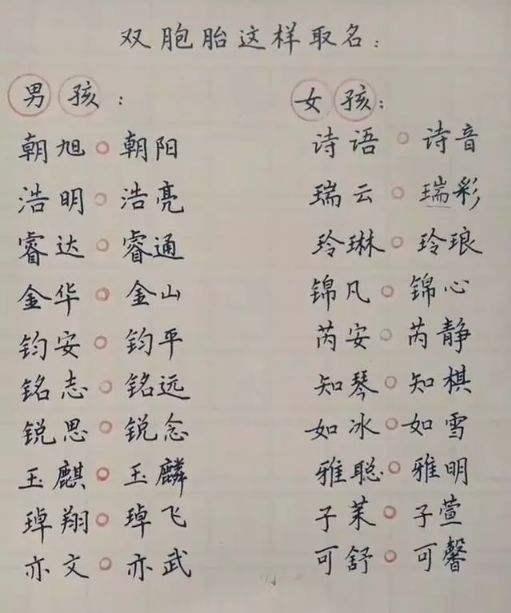 双胞胎这样取名:
男孩:
朝旭○朝阳
浩明○浩亮
睿达○睿通
金华○金山
钧安○钧平
铭志○铭远
锐思○锐念
玉麒○玉麟
琸翔○琸飞
亦文○亦武
女孩:
诗语○诗音
瑞云○瑞彩
玲琳○玲琅
锦凡○锦心
芮安○芮静
知琴○知棋
如冰○如雪
雅聪○雅明
子茉○子萱
可舒○可馨